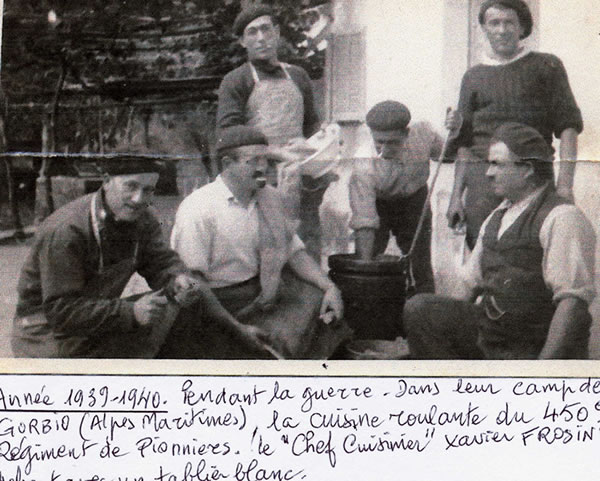 Année 1939-1940. Pendant la guerre. Dans leur camp de
GORBIO (Alpes Maritimes), la cuisine roulante du 450e
Régiment de Pionniers. le "Chef Cuisinier" Xavier FROSIN
avec un tablier blanc.